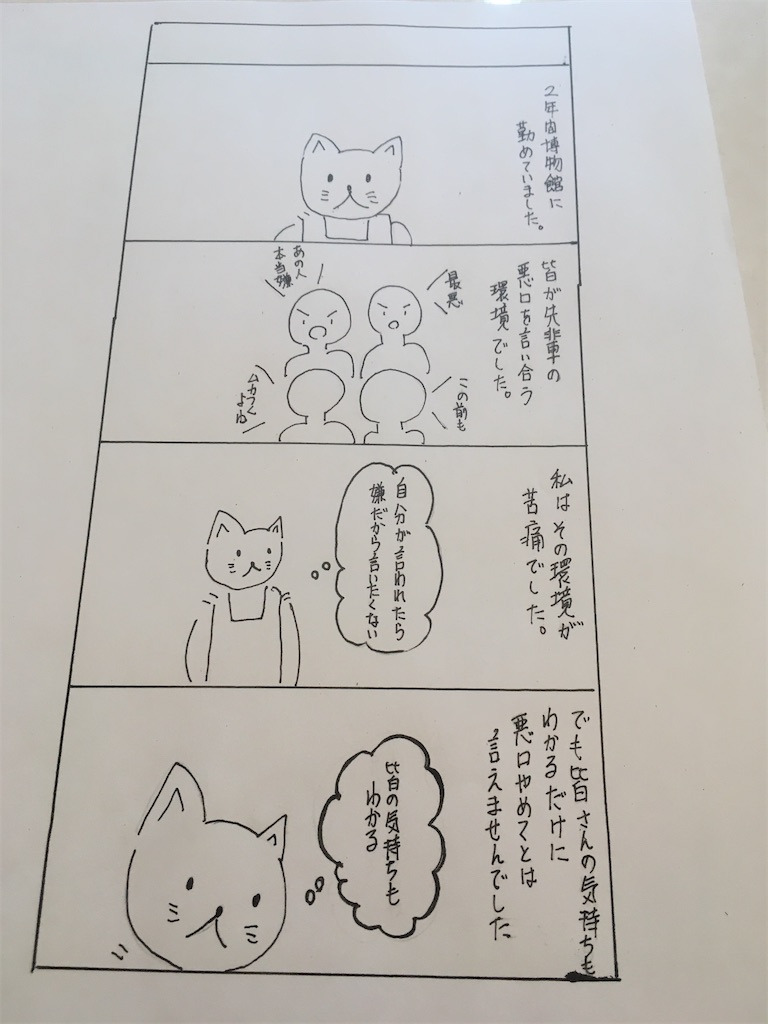 2年間博物館に
勤めていました。
皆が先輩の
悪口を言い合う
環境でした。
最悪
あの人
本当嫌
この前も
ムカつく
よね
私はその環境が
苦痛でした。
自分が言われたら
嫌だから言いたくない
でも皆さんの気持ちも
わかるだけに
悪口やめてとは
言えませんでした
皆の気持ちも
わかる